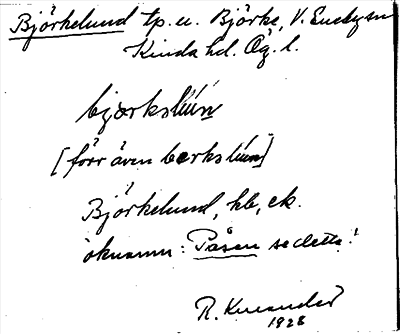 Björkelund tp. u. Björke, V. Eneby sn
Kinda hd. Ög. l.
bjærkslúùn
[förr även bærkslúùn]
Björkelund, hb, ek.
öknamn: Påsen se detta!
R.
1928